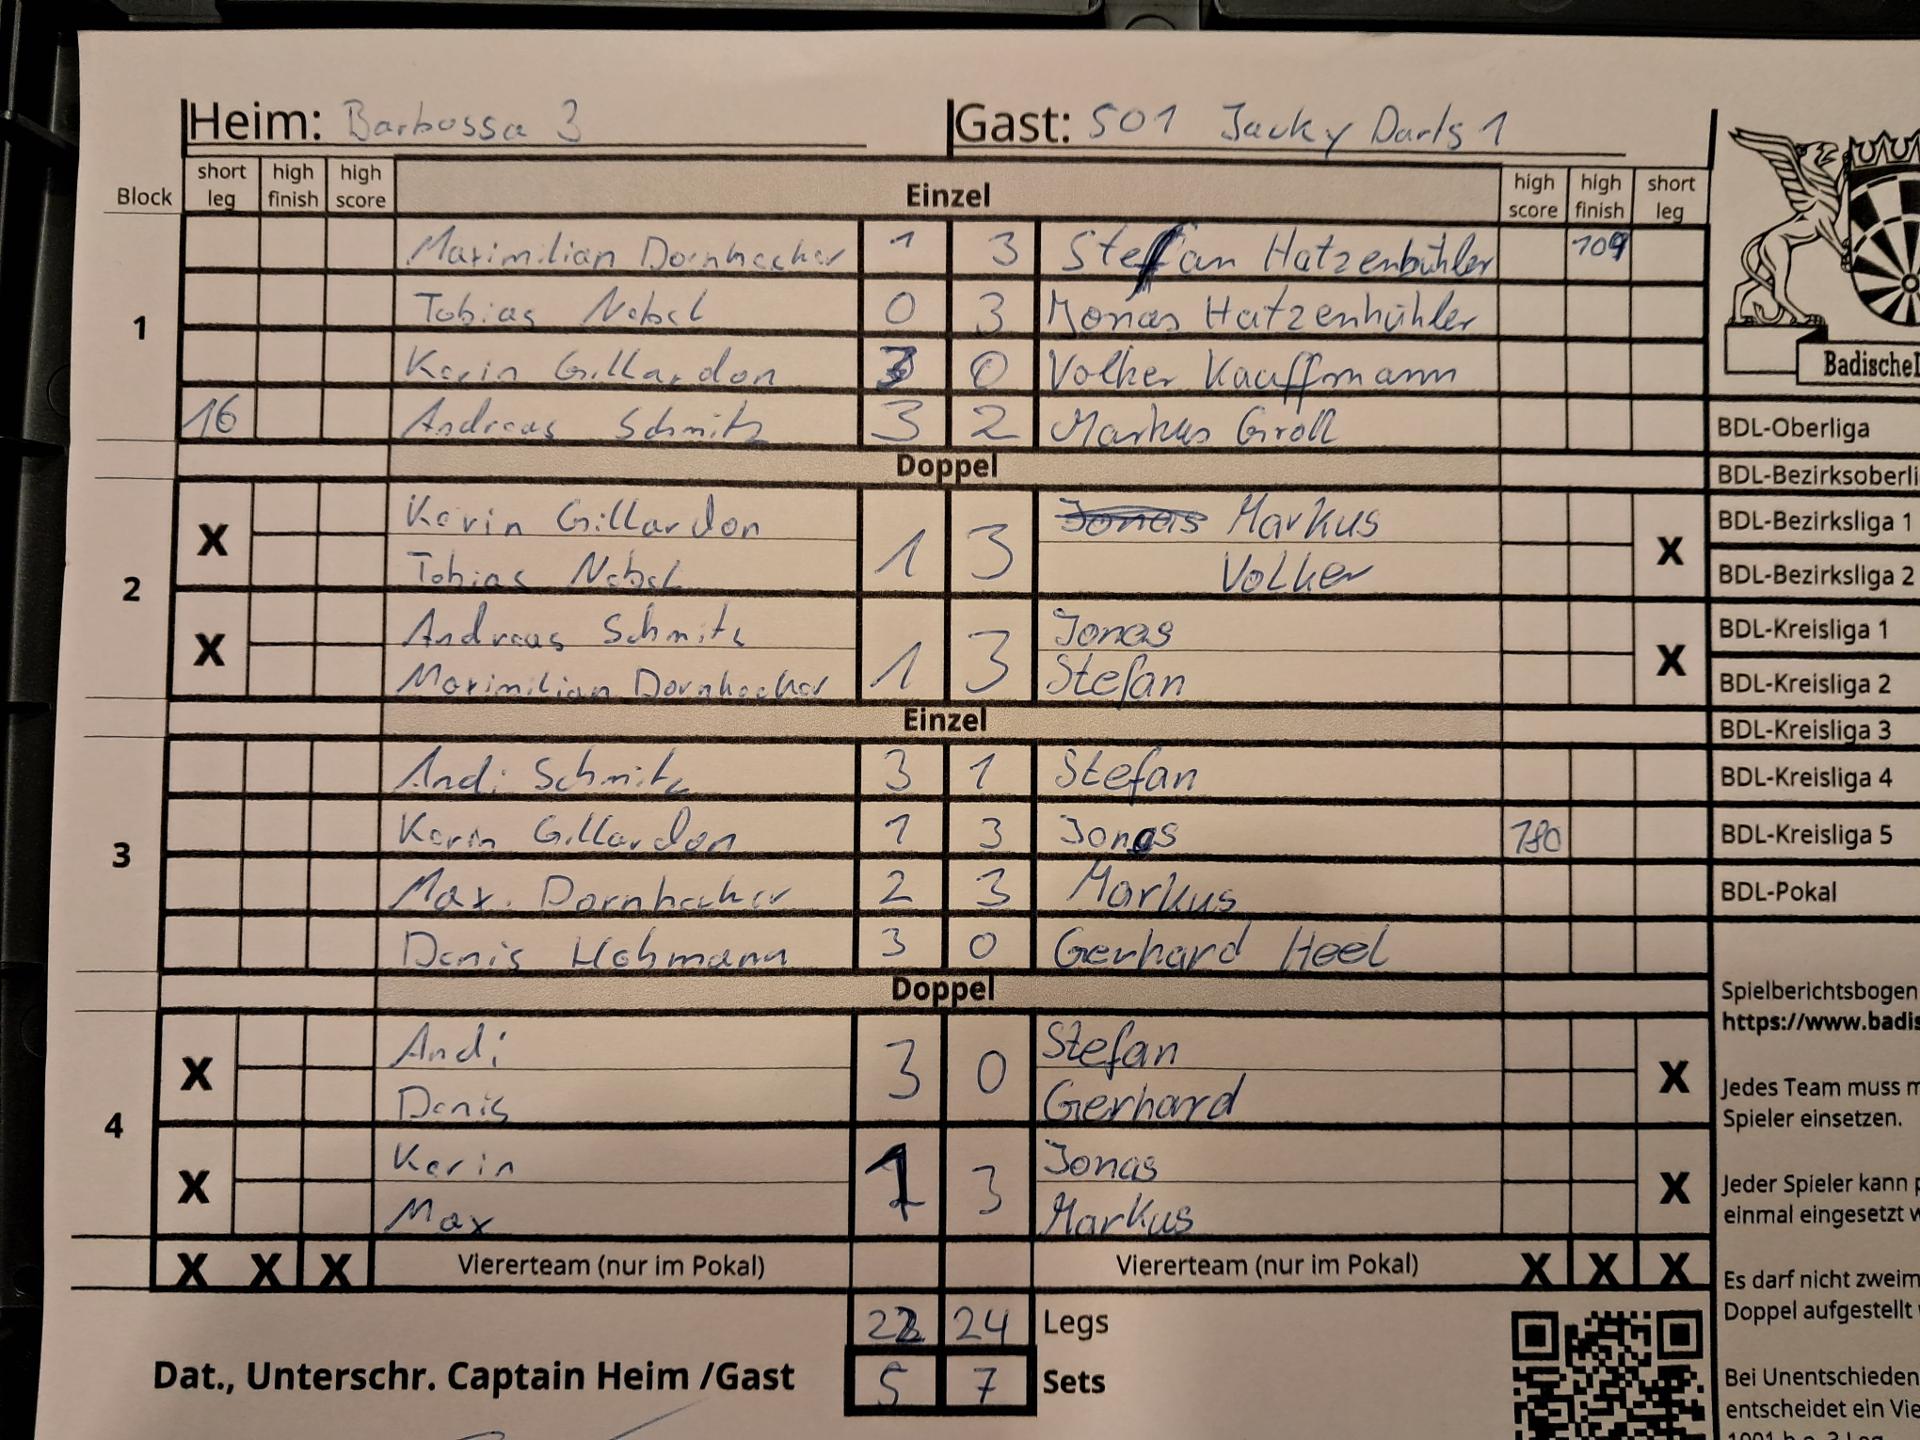 Heim: Barbossa 3 Gast: 501 Jacky Darts 1
Block short leg high finish high score Einzel high score high finish short leg
1
Maximilian Dornhecker 1 3 Steffan Hatzenbühler 109
Tobias Nebel 0 3 Jonas Hatzenbühler
Kevin Gillardon 3 0 Volker Kauffmann
16 Andreas Schmitz 3 2 Markus Groll
BDL-Oberliga
Doppel
BDL-Bezirksoberli
2
X Kevin Gillardon 1 3 Jonas Markus X
Tobias Nebel Volker
BDL-Bezirksliga 1
BDL-Bezirksliga 2
X Andreas Schmitz 1 3 Jonas X
Maximilian Dornhecker Stefan
BDL-Kreisliga 1
BDL-Kreisliga 2
Einzel
BDL-Kreisliga 3
3
Andi Schmitz 3 1 Stefan
BDL-Kreisliga 4
Kevin Gillardon 1 3 Jonas 180
BDL-Kreisliga 5
Max. Dornhecker 2 3 Markus
BDL-Pokal
Denis Hohmann 3 0 Gerhard Heel
Doppel
4
X Andi 3 0 Stefan X
Denis Gerhard
X Kevin 1 3 Jonas X
Max Markus
X X X Viererteam (nur im Pokal) Viererteam (nur im Pokal) X X X
22 24 Legs
5 7 Sets
Dat., Unterschr. Captain Heim /Gast
Spielberichtsbogen
https://www.badis
Jedes Team muss m
Spieler einsetzen.
Jeder Spieler kann p
einmal eingesetzt w
Es darf nicht zweim
Doppel aufgestellt
Bei Unentschieden
entscheidet ein Vie